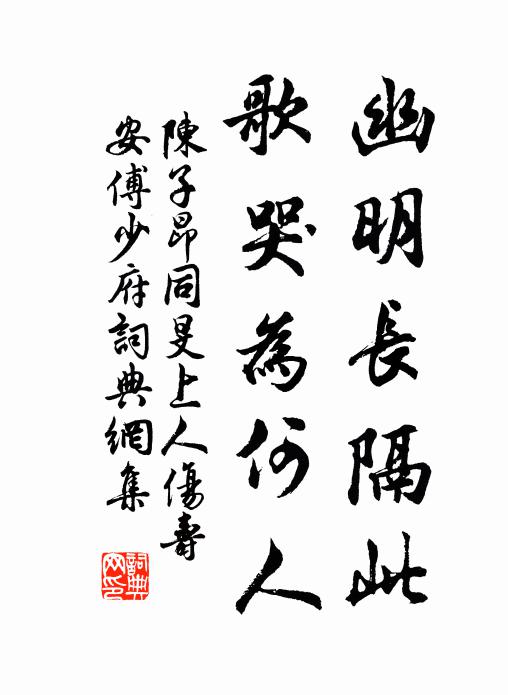 幽明長隔此
歌哭為何人
陳子昂同旻上人傷壽
安傅少府詞典網集
詞典網印